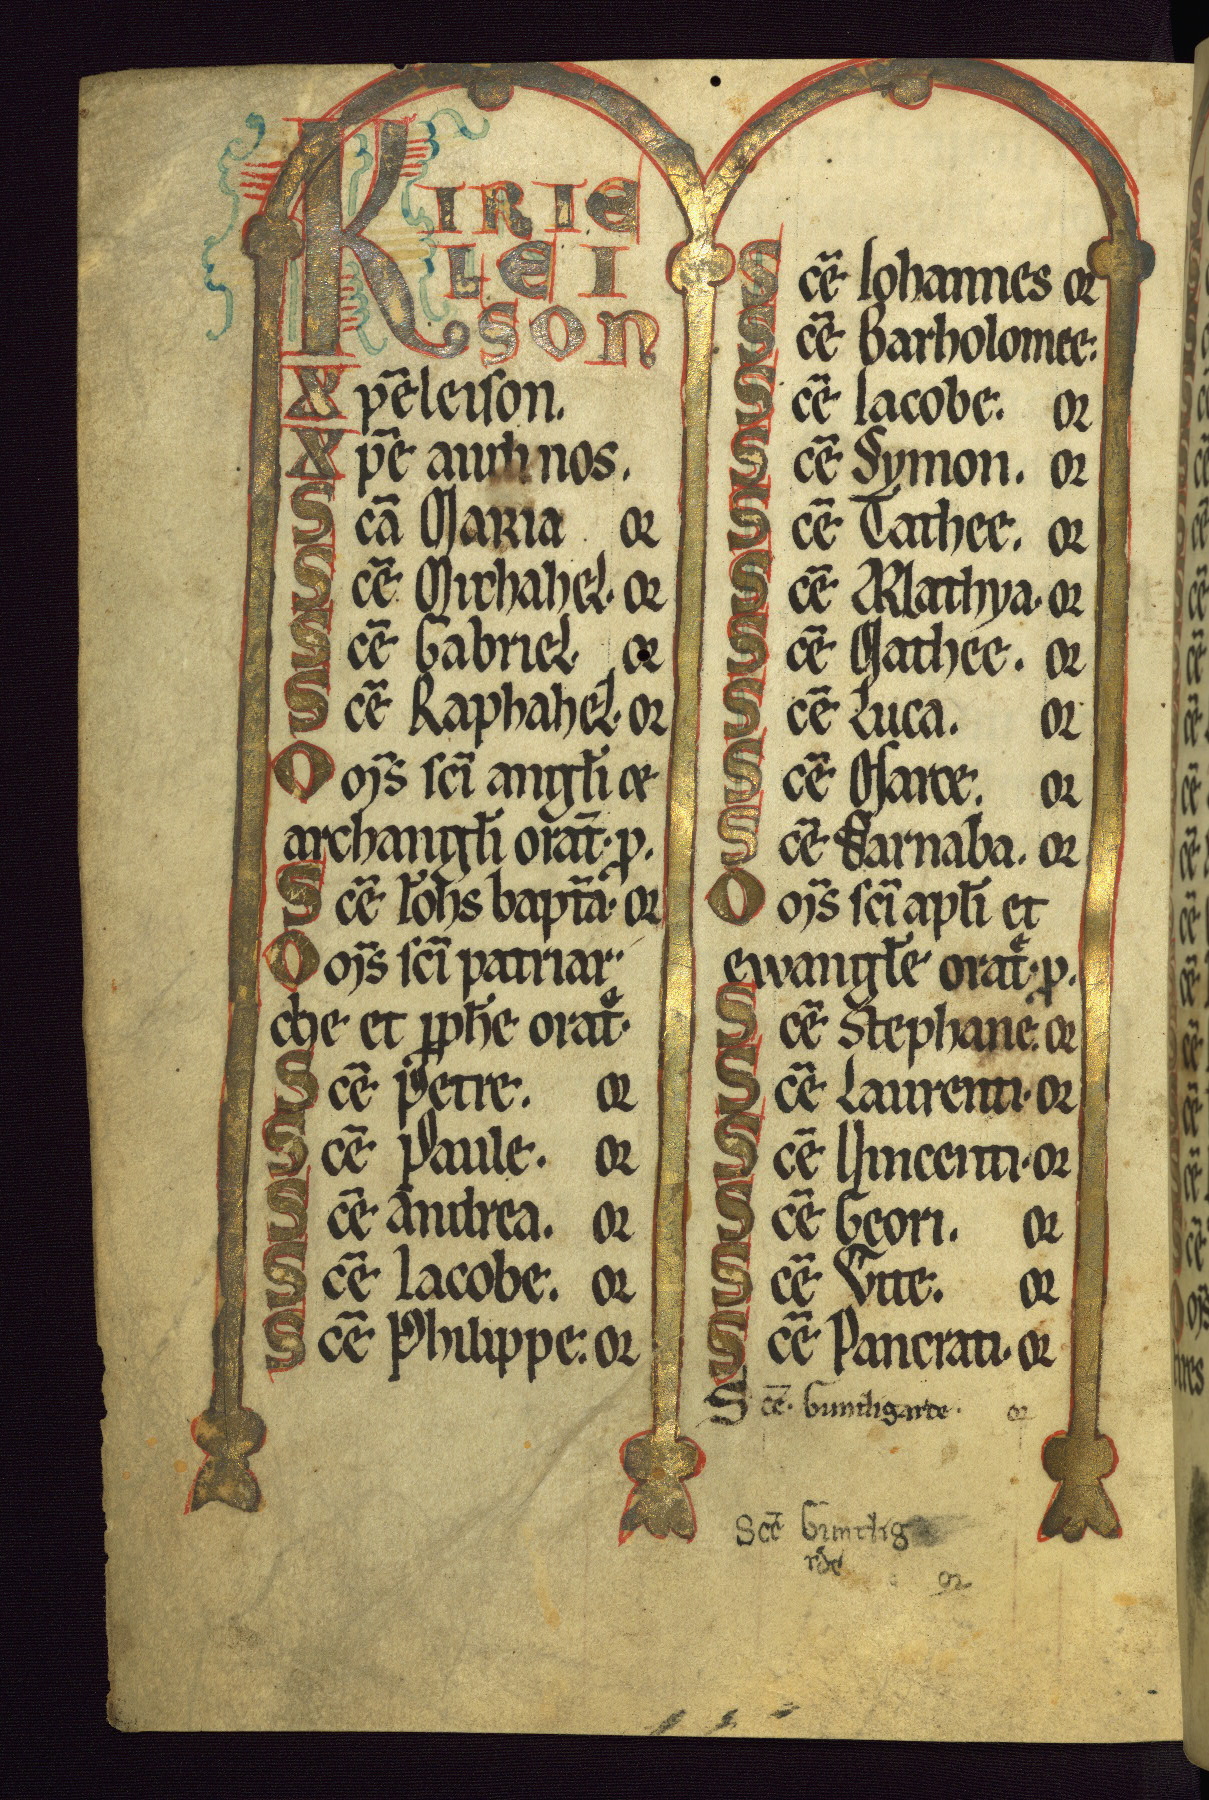 KIRIE
LEI
SON
Xp̄eleison.
Xp̄e audi nos.
Sc̄a Maria or
Sc̄e Michahel. or
Sc̄e Gabriel. or
Sc̄e Raphahel. or
Om̄s sc̄i angl̄i et
archangl̄i orat̄. p.
Sc̄e Ioh̄s bapt̄a. or
Om̄s sc̄i patriar
che et pph̄e orat̄e.
Sc̄e Petre. or
Sc̄e Paule. or
Sc̄e Andrea. or
Sc̄e Iacobe. or
Sc̄e Philippe. or
Sc̄e Iohannes or
Sc̄e Bartholomee.
Sc̄e Iacobe. or
Sc̄e Symon. or
Sc̄e Tathee. or
Sc̄e Mathya. or
Sc̄e Mathee. or
Sc̄e Luca. or
Sc̄e Marce. or
Sc̄e Barnaba. or
Om̄s sc̄i apl̄i et
ewangl̄e orat̄e. p.
Sc̄e Stephane. or
Sc̄e Laurenti. or
Sc̄e Vincenti. or
Sc̄e Geori. or
Sc̄e Vite. or
Sc̄e Pancrati. or
Sc̄e. Guntligarte. or
Sc̄e
or